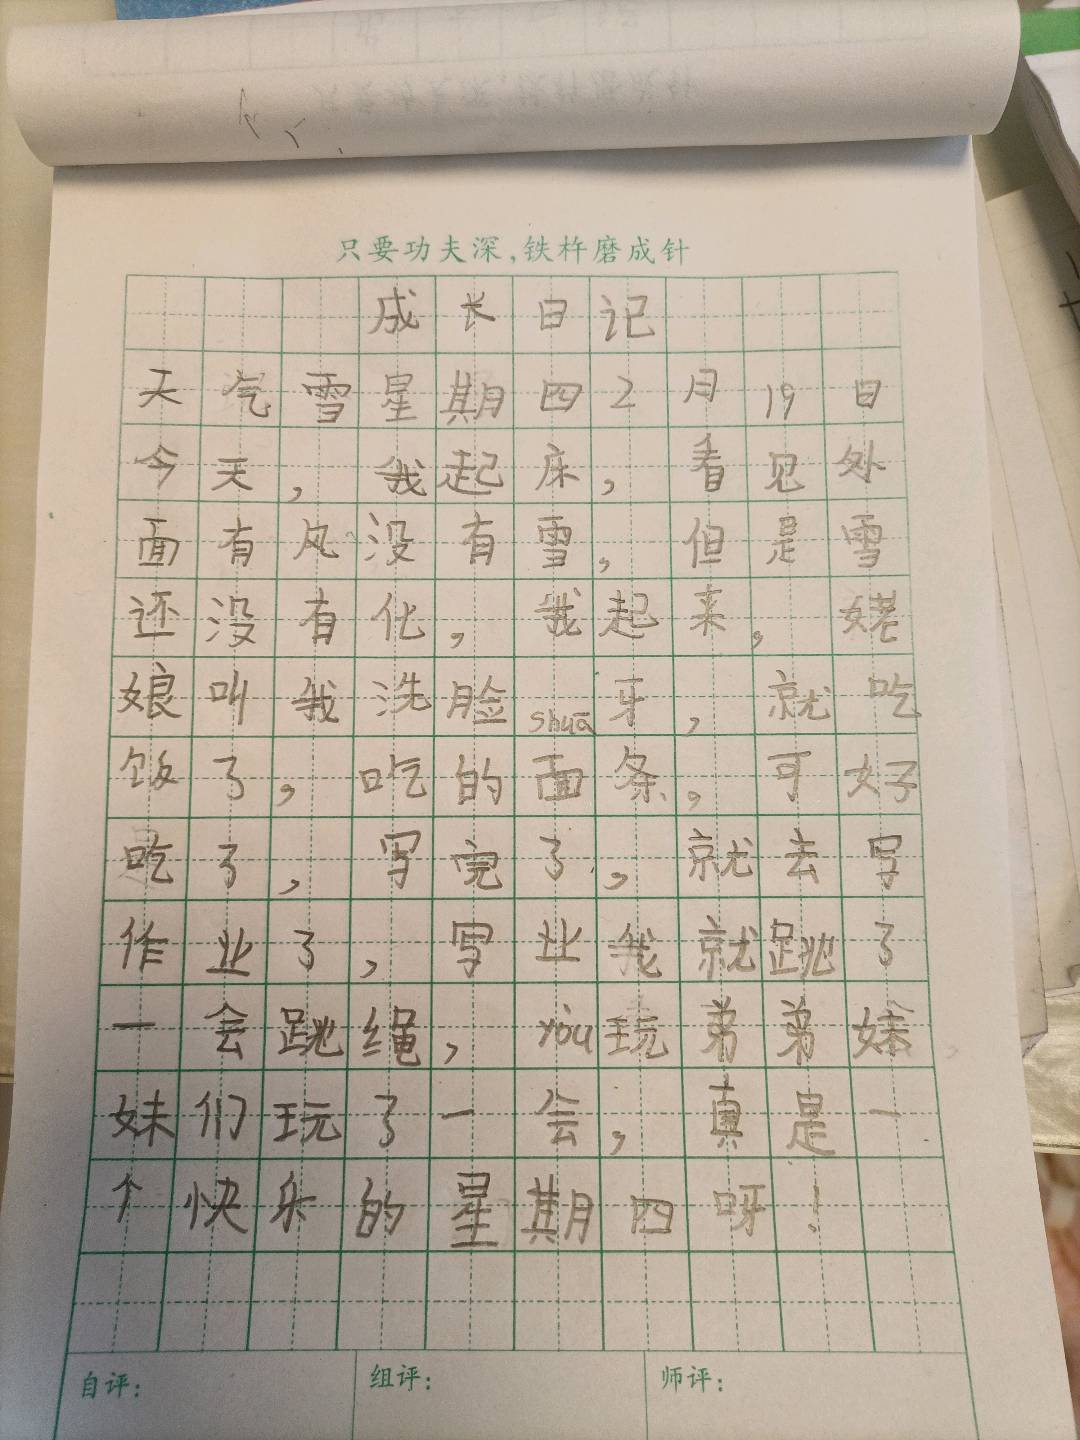 只要功夫深,铁杵磨成针
成长日记
天气雪星期四2月19日
今天，我起床，看见外
面有风没有雪，但是雪
还没有化，我起来，姥
娘叫我洗脸shuā牙，就吃
饭了，吃的面条，可好
吃了，写完了，就去写
作业了，写业我就跳了
一会跳绳，yòu玩弟弟妹
妹们玩了一会，真是一
个快乐的星期四呀！
自评： 组评： 师评：